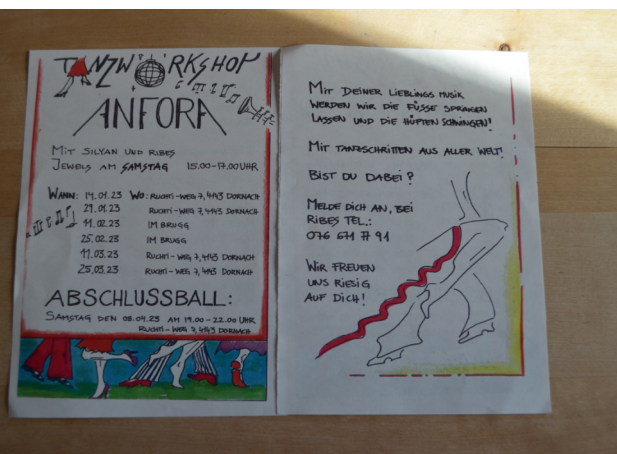 TANZWORKSHOP
ANFORA
MIT SILYAN UND RIBES
JEWELS AM SAMSTAG 15.00-17.00 UHR
WANN: 14.01.23 WO: RUCHTI-WEG 7, 4143 DORNACH
29.01.23 RUCHTI-WEG 7, 4143 DORNACH
11.02.23 IM BRUGG
25.02.23 IM BRUGG
11.03.23 RUCHTI-WEG 7, 4143 DORNACH
25.03.23 RUCHTI-WEG 7, 4143 DORNACH
ABSCHLUSSBALL:
SAMSTAG DEN 08.04.23 AM 19.00-22.00 UHR
RUCHTI-WEG 7, 4143 DORNACH
MIT DEINER LIEBLINGS MUSIK
WERDEN WIR DIE FÜSSE SPRINGEN
LASSEN UND DIE HÜFTEN SCHWINGEN!
MIT TANZSCHRITTEN AUS ALLER WELT!
BIST DU DABEI?
MELDE DICH AN, BEI
RIBES TEL.:
076 671 77 91
WIR FREUEN
UNS RIESIG
AUF DICH!